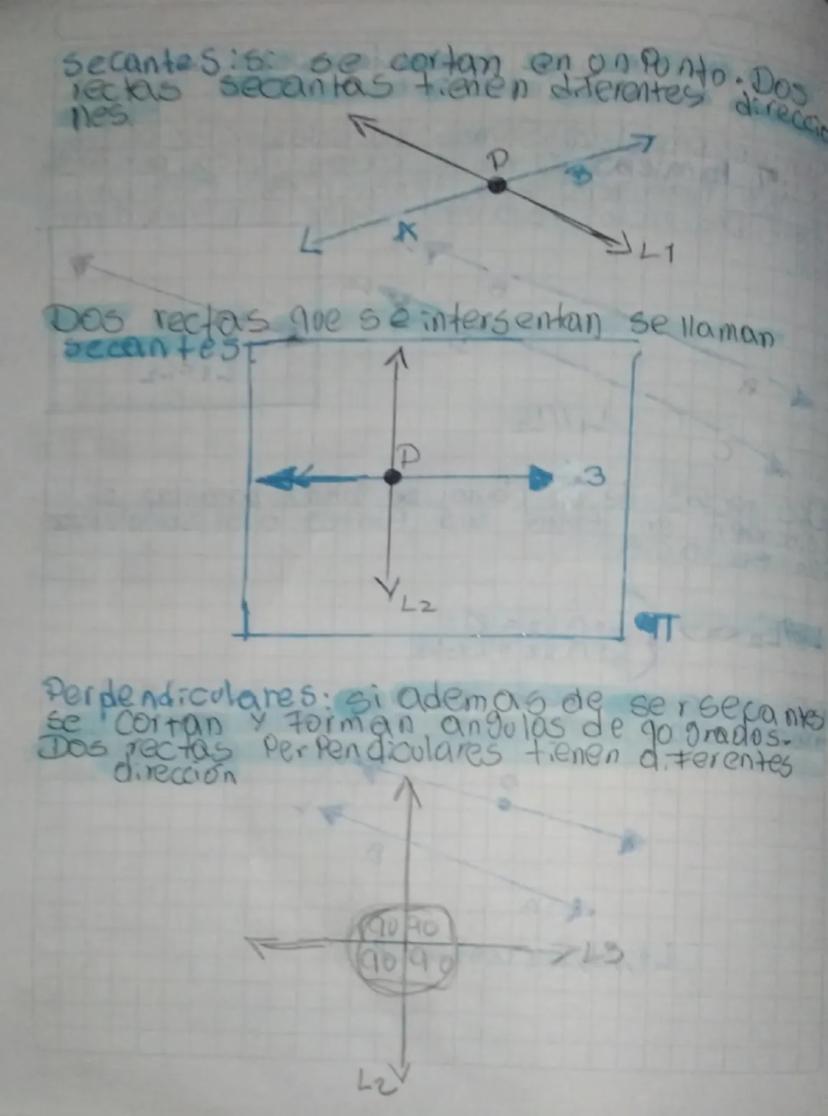 secantes: si se cortan en on Ponto. Dos
rectas secantas tienen diferentes direccio
nes.
P
B
A
L1
Dos rectas que se intersentan se llaman
secantes
P
3
L2
π
Perpendiculares: si ademas de ser secantes
se cortan y forman angulos de 90 grados.
Dos rectas PerPendiculares tienen diferentes
dirección
90 90
90 90
L3
L2